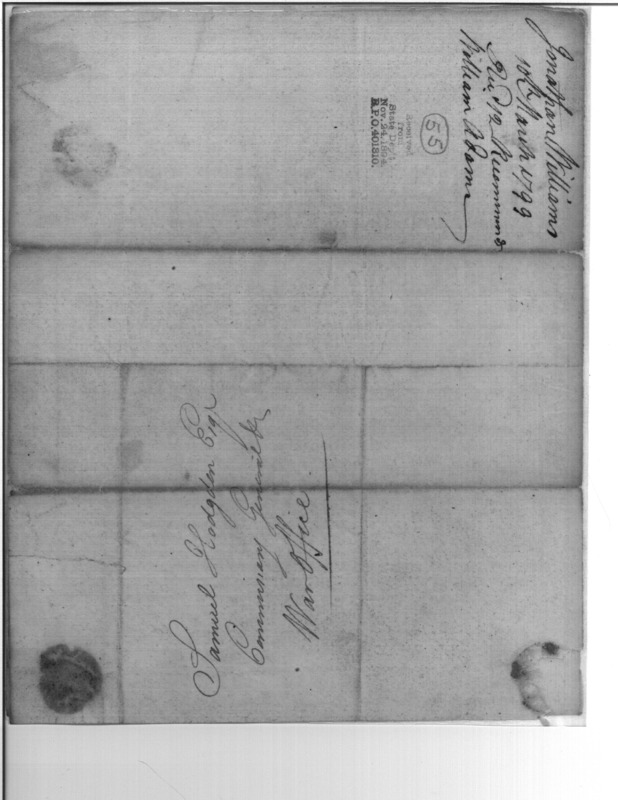 Jonathan Williams
10th March 1799
Recd 12 Recommends
William Adams
55
Received
from
State Dep't
Nov. 24, 1894.
R.P.O. 401810.
Samuel Hodgdon Esqr
Commissary General &c
War Office